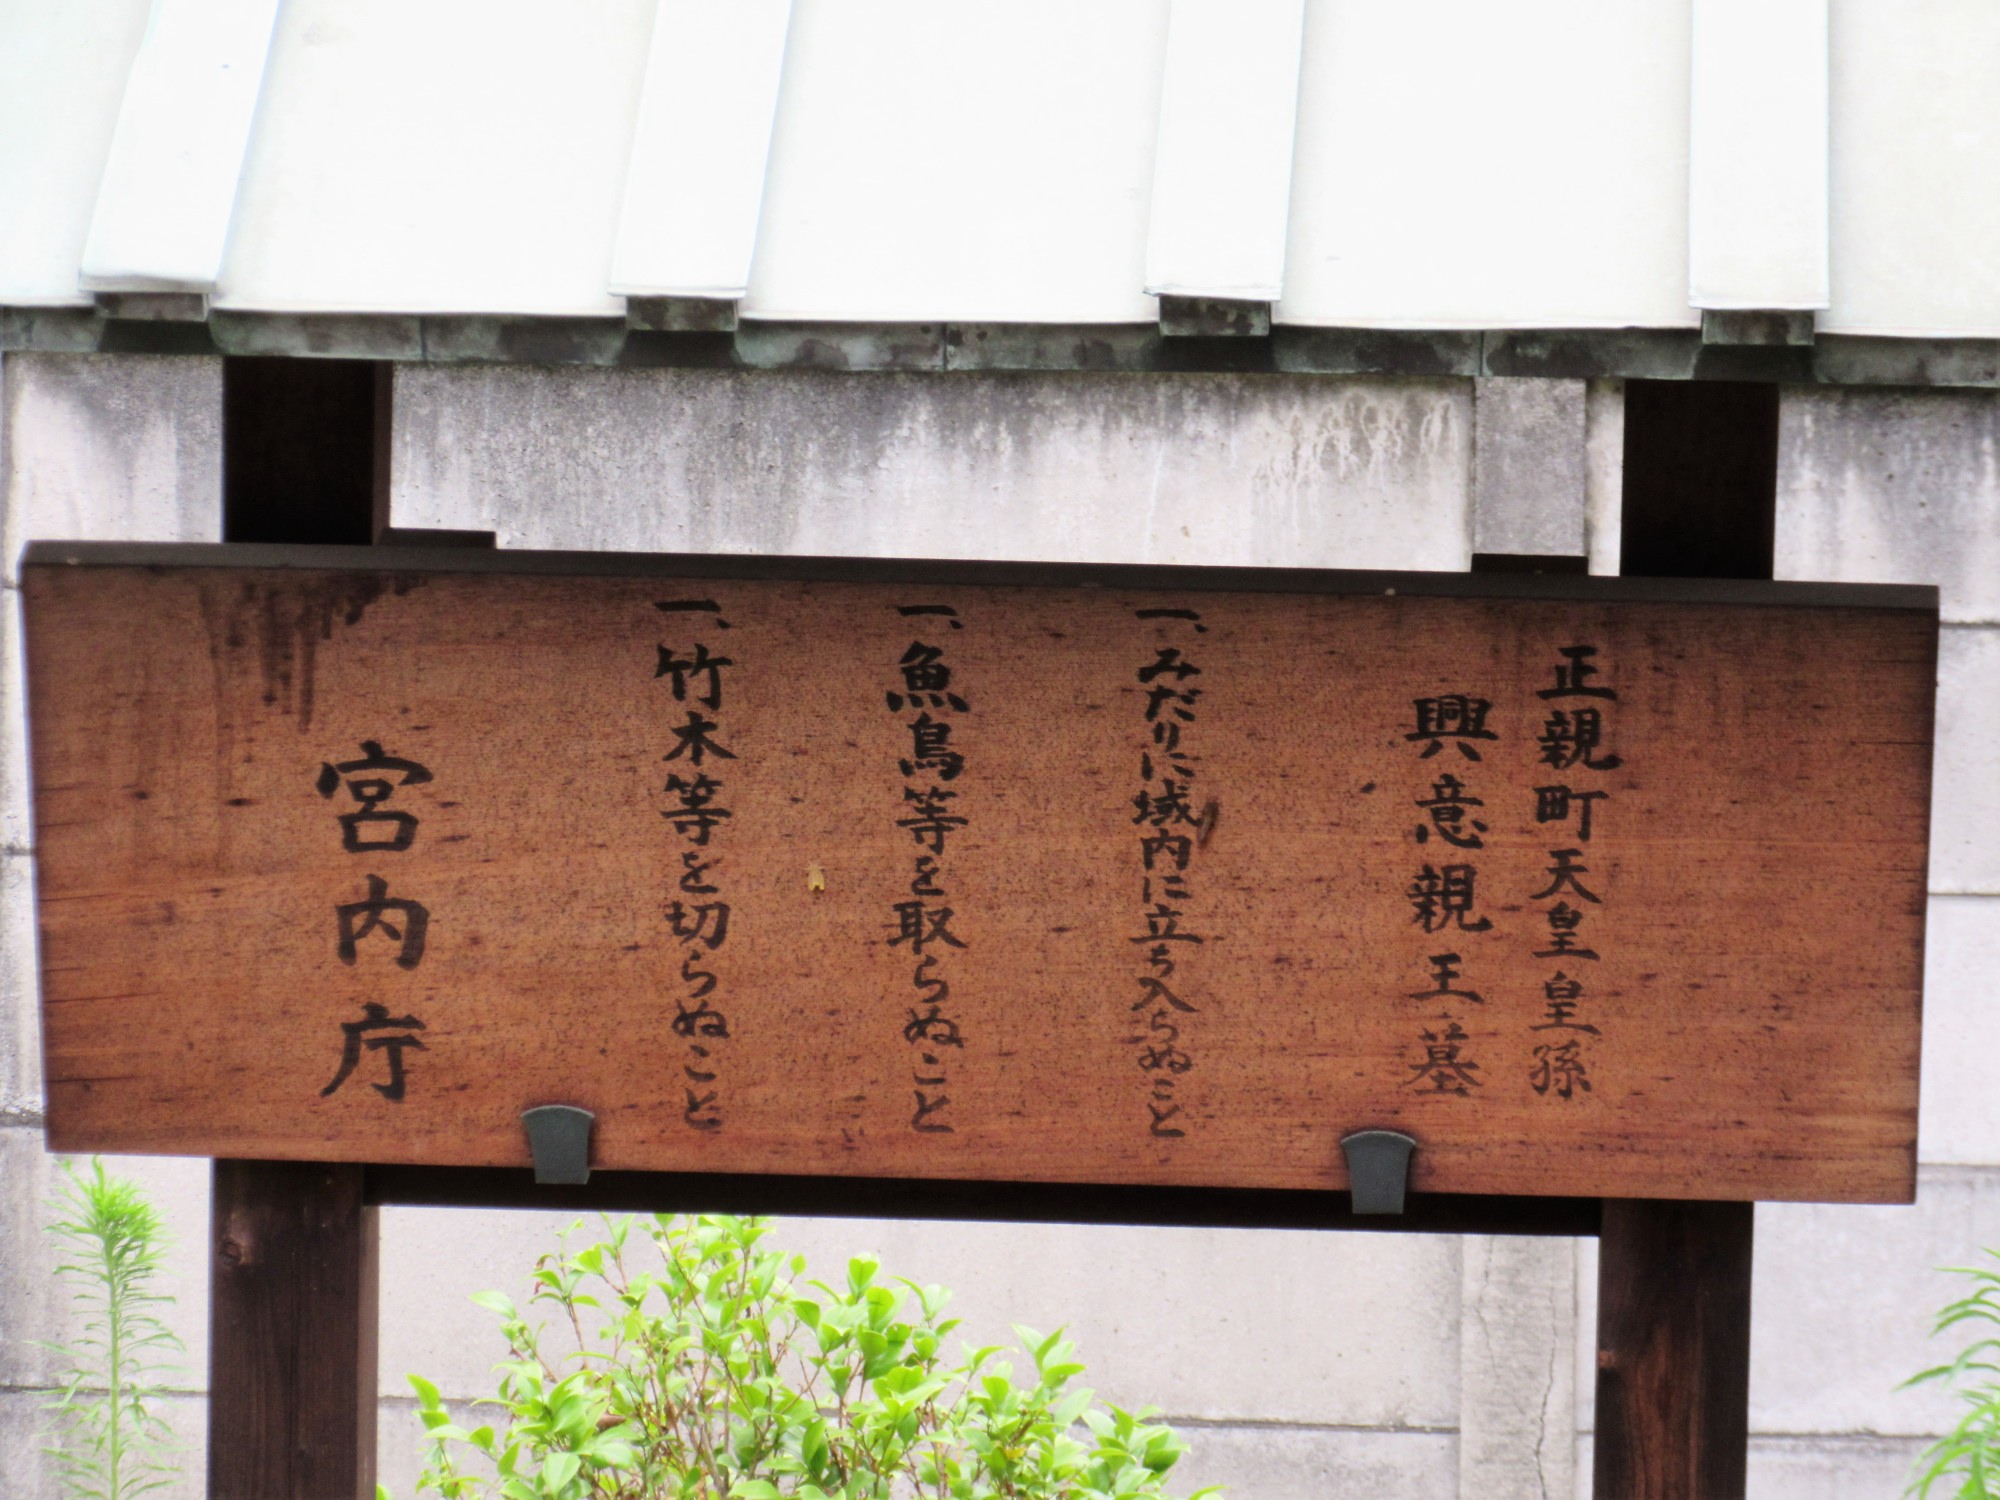 正親町天皇皇孫
興意親王墓
一、みだりに域内に立ち入らぬこと
一、魚鳥等を取らぬこと
一、竹木等を切らぬこと
宮内庁